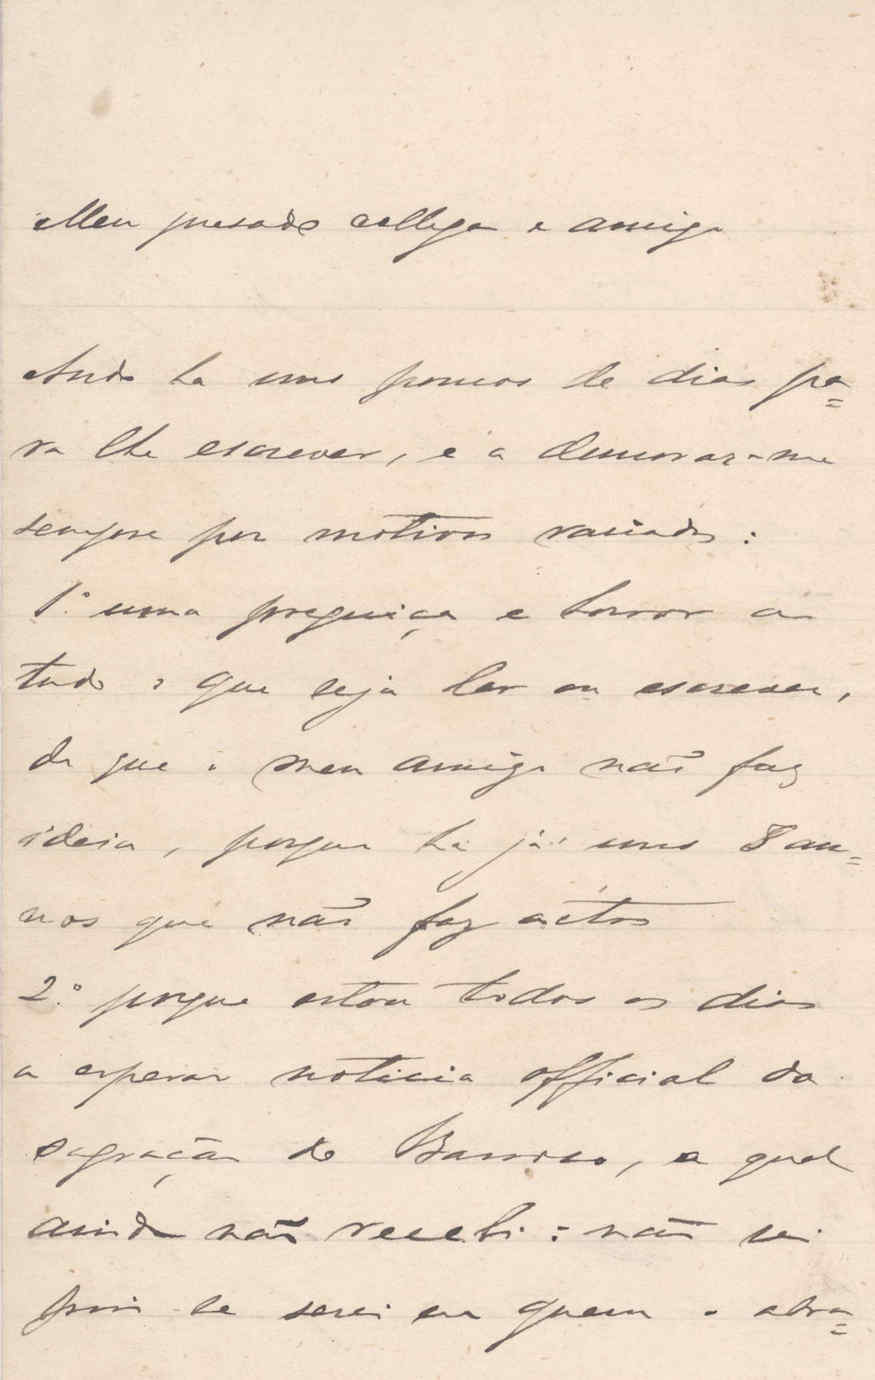 Meu presado collega e amigo
Ando ha uns poucos de dias pa=
ra lhe escrever, e a demorar-me
sempre por motivos variados:
1.º uma preguiça e horror a
tudo o que seja ler ou escrever,
de que o meu amigo não faz
ideia, porque ha já uns 8 an=
nos que não faz actos
2.º porque estou todos os dias
a esperar noticia official da
sagração do Barroso, a qual
ainda não recebi: não sei
pois se serei eu quem o abra=